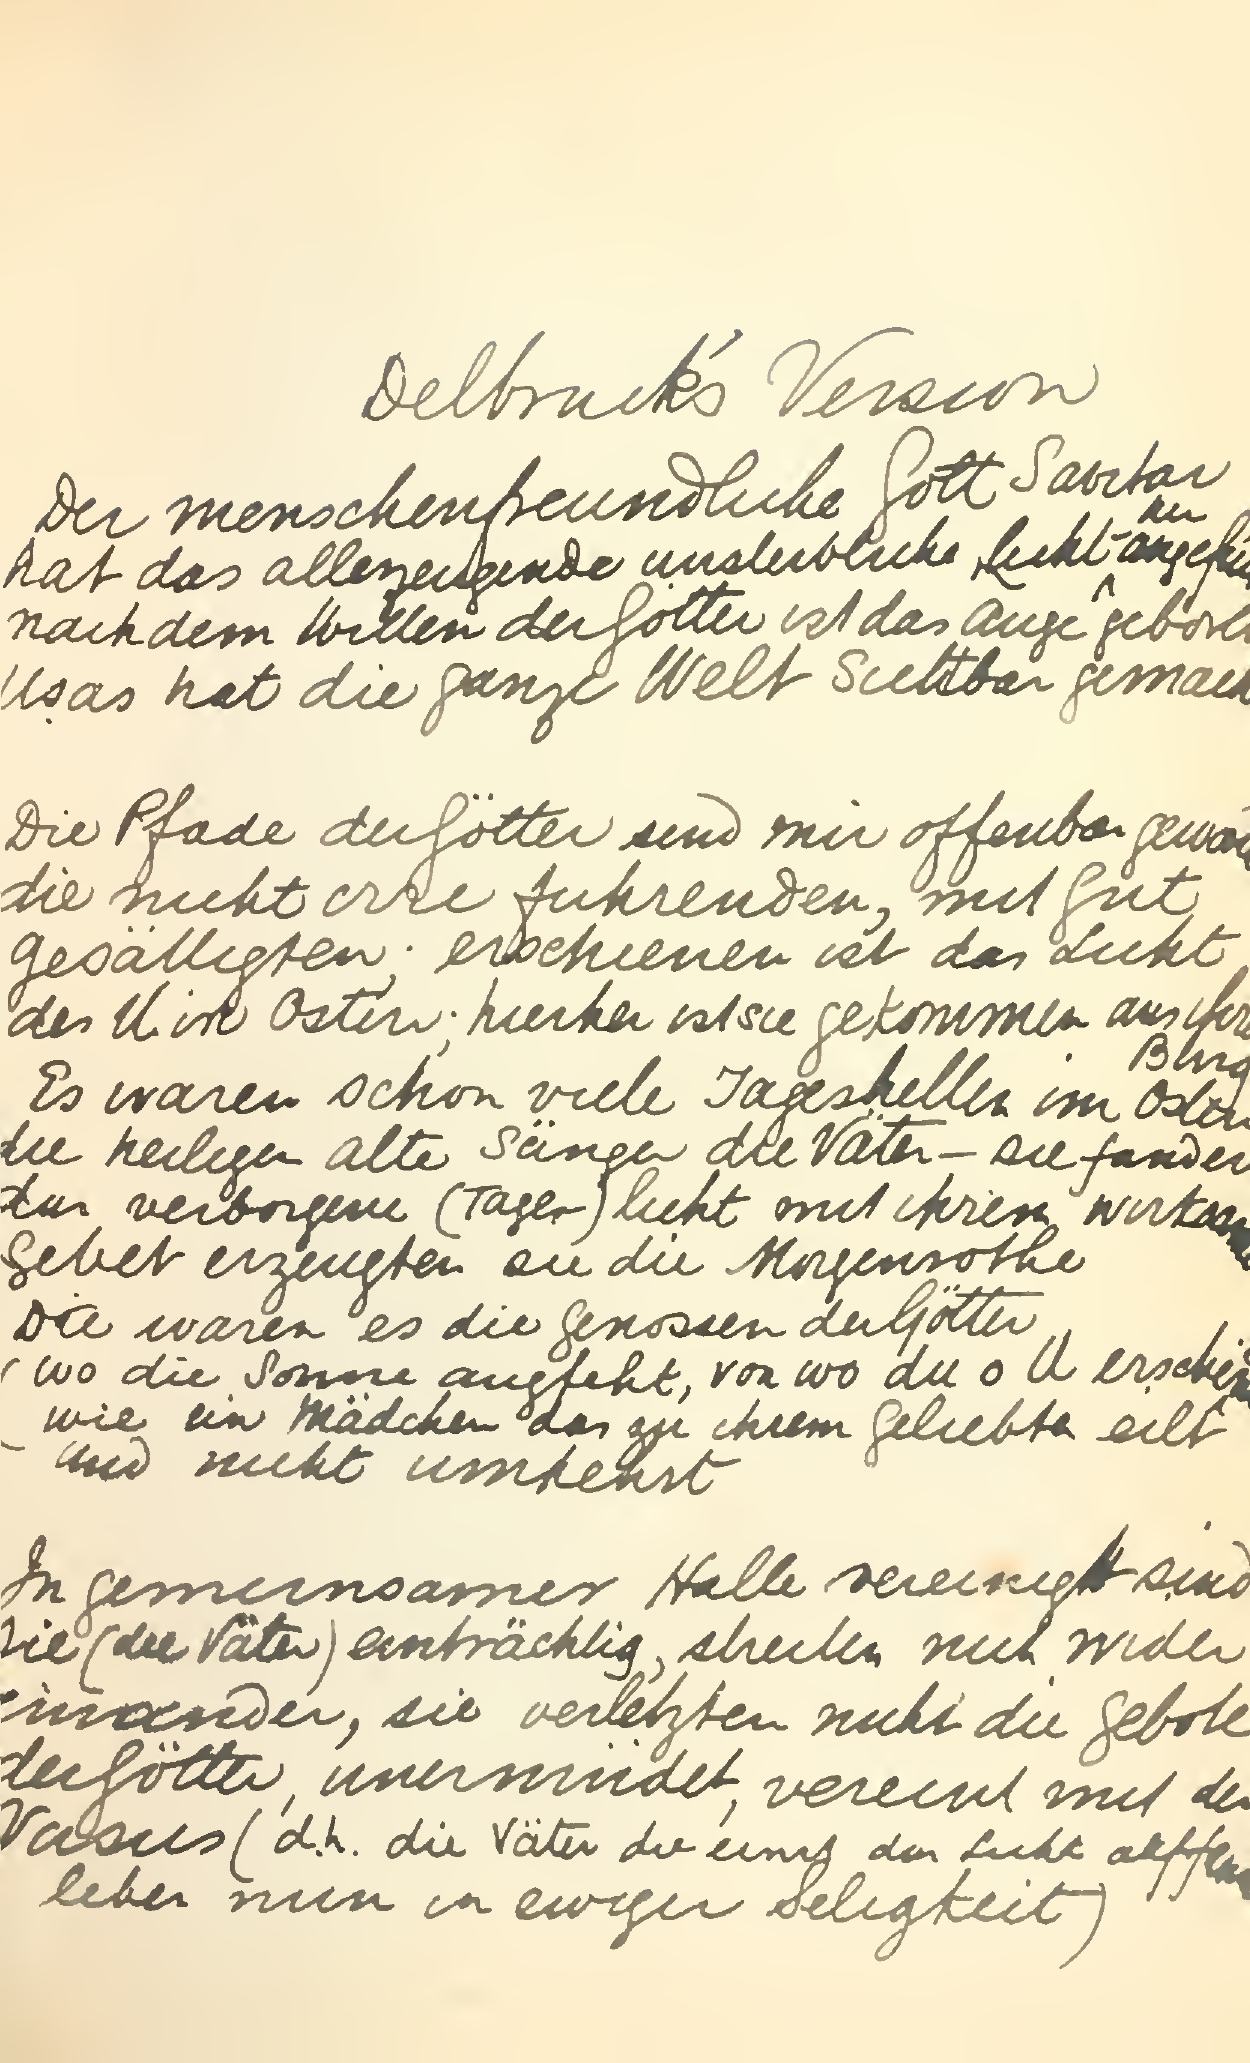 Delbruck's Version
Der menschenfreundliche Gott Savitar
hat das allerzeugende unsterbliche Licht
nach dem Willen der Götter ist das Auge
Usas hat die ganze Welt Sichtbar
Die Pfade der Götter sind mir offenbar
die nicht irre fuhrenden, mit Gut
gesättigten; erschienen ist das Licht
des U. im Osten; hierher ist sie gekommen aus
Burg
Es waren schon viele Tageshellen im Osten
die heiligen alte Sänger die Väter – sie fanden
das verborgene (Tages) licht mit ihrem
Gebet erzeugten sie die Morgenrothe
Die waren es die genossen der Götter
(wo die Sonne aufgeht, von wo du o U
wie ein Mädchen das zu ihrem geliebten eilt
und nicht umkehrst
In gemeinsamer Halle vereinigt sind
sie (die Väter) einträchtig, streiten nicht wider
einander, sie verletzten nicht die gebote
der Götter, unermüdet, vereint mit den
Vasus (d.h. die Väter die einst das Licht
leben nun in ewiger Seligkeit)